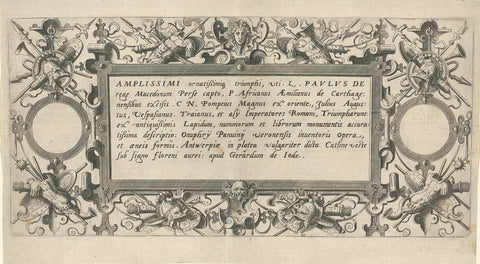 AMPLISSIMI ornatissimiq triumphi, uti L. PAVLVS DE
rege Macedonum Perse capto, P. Africanus Æmilianus de Carthagi-
nensibus excisis. C N. Pompeius Magnus ex oriente, Julius Augus
tus, Vespasianus. Traianus, et alÿ Imperatores Romani, Triumpharunt
ex antiquissimis Lapidum, nummorum et librorum monumentis accura
tissima descriptio: Onuphrÿ Panuinÿ Veronensis inventoris Opera,
et æneis formis. Antwerpiæ in platea vulgariter dicta Cathlijne veste
sub signo floreni aurei: apud Gerardum de Iode.